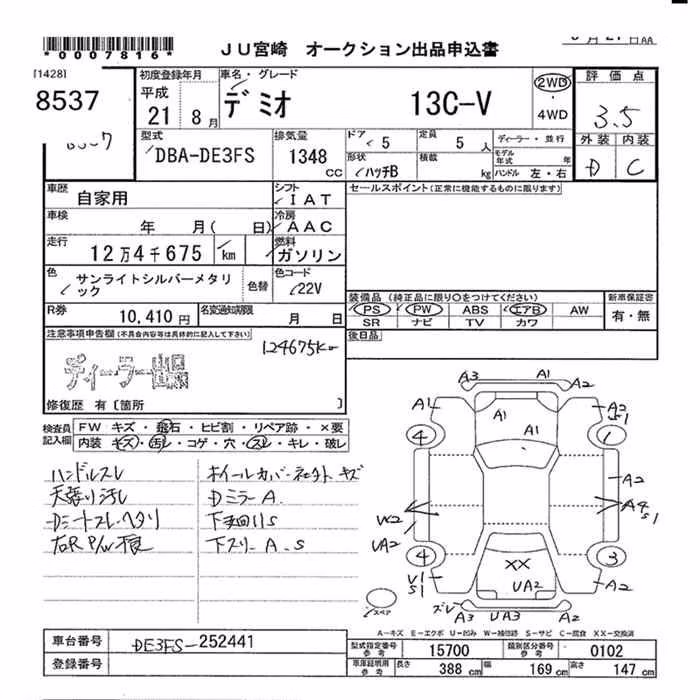 *0007816*
JU宮崎 オークション出品申込書
[1428]
8537
初度登録年月
平成
21 8月
車名・グレード
デミオ 13C-V
2WD
4WD
評価点
3.5
外装 内装
D C
型式
DBA-DE3FS
排気量
1348
CC
ドア
5
定員
5人
ディーラー・並行
モデル
年式 年
形状
ハッチB
積載
kg
ハンドル 左・右
車歴
自家用
シフト
IAT
セールスポイント(正常に機能するものに限ります)
車検
年 月( 日)
冷房
AAC
走行
12万4千675 km
燃料
ガソリン
色
サンライトシルバーメタリ
ック
色替
色コード
22V
R券
10,410円
名変通知期限
月 日
装備品(純正品に限り○をつけてください)
PS PW ABS エアB AW
SR ナビ TV カワ
新車保証書
有・無
後日品
注意事項申告欄(不具合内容等は具体的に記入して下さい)
124675K
ディーラー出品
修復歴 有〔箇所 〕
検査員
記入欄
FW キズ・飛石・ヒビ割・リペア跡・×要
内装 キズ・汚レ・コゲ・穴・スレ・キレ・破レ
ハンドルスレ ホイールカバー キズ
天張り汚レ Dミラー A.
Dシートスレ、ヘタリ 下回りS
右R P/W不良 下スリー A.S
A3 A1 A2
A1 A1 A2 S1
4 A2 1
A2
W2 A4 S1
UA2
4 XX 3
V1 S1 UA2 A2
スペア
ズレ A3 UA3 A2
A-キズ E-エクボ U-凹み W-補修跡 S-サビ C-腐食 XX-交換済
車台番号
DE3FS-252441
登録番号
型式指定番号
参考
15700
類別区分番号
参考
0102
車庫証明用
参考
長さ
388 cm
幅
169 cm
高さ
147 cm